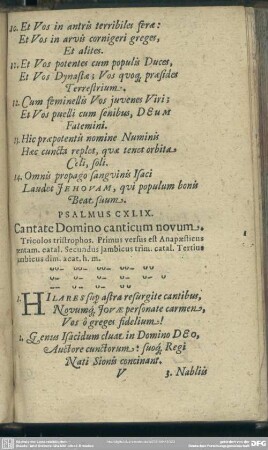 10. Et Vos in antris terribiles feræ:
Et Vos in arvis cornigeri greges,
Et alites.
11. Et Vos potentes cum populis Duces,
Et Vos Dynastæ; Vos quoq; præsides
Terrestrium.
12. Cum femellis Vos juvenes Viri;
Et Vos puelli cum senibus, DEUM
Fatemini.
13. Hic præpotentis nomine Numinis
Hæc cuncta replet, quæ tenet orbita
Cœli, soli.
14. Omnis propago sangvinis Isaci
Laudet JEHOVAM, qui populum bonis
Beat suum.
PSALMUS CXLIX.
Cantate Domino canticum novum.
Tricolos tristrophos. Primus versus est Anapæsticus
catal. Secundus jambicus trim. catal. Tertius
jambicus dim. acat. h. m.
1. HILARES sup astra resurgite cantibus,
Novumq; Jovæ personate carmen,
Vos ô greges fidelium!
2. Genus Isacidum cluat in Domino DEO,
Auctore cunctorum: suoq; Regi
Nati Sionis concinant.
V 3. Nabliis